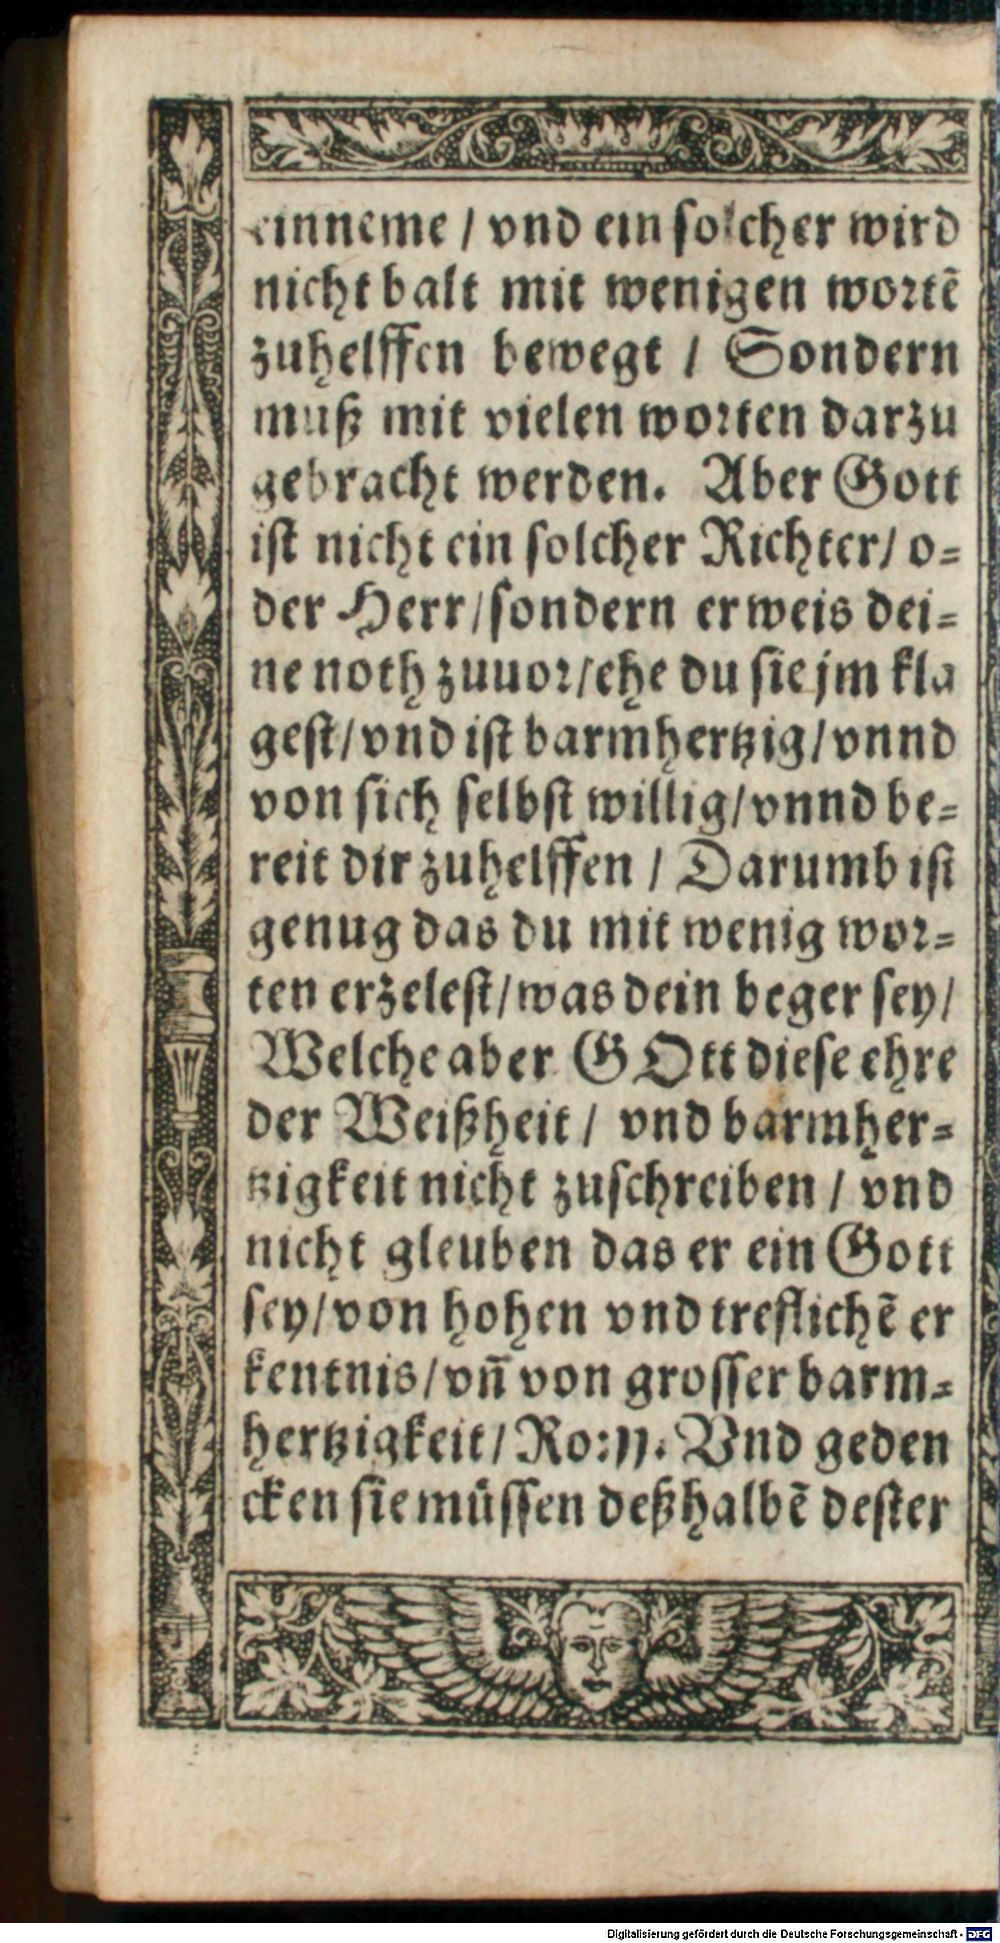 einneme / vnd ein solcher wird
nicht balt mit wenigen wortẽ
zuhelffen bewegt / Sondern
muß mit vielen worten darzu
gebracht werden. Aber Gott
ist nicht ein solcher Richter/ o⸗
der Herr/ sondern er weis dei⸗
ne noth zuuor/ ehe du sie jm kla
gest/ vnd ist barmhertzig/ vnnd
von sich selbst willig/ vnnd be⸗
reit dir zuhelffen / Darumb ist
genug das du mit wenig wor⸗
ten erzelest/ was dein beger sey/
Welche aber GOtt diese ehre
der Weißheit / vnd barmher⸗
tzigkeit nicht zuschreiben / vnd
nicht gleuben das er ein Gott
sey/ von hohen vnd treflichẽ er
kentnis/ vñ von grosser barm⸗
hertzigkeit/ Ro: 11. Vnd geden
cken sie müssen deßhalbẽ dester
Digitalisierung gefördert durch die Deutsche Forschungsgemeinschaft - DFG